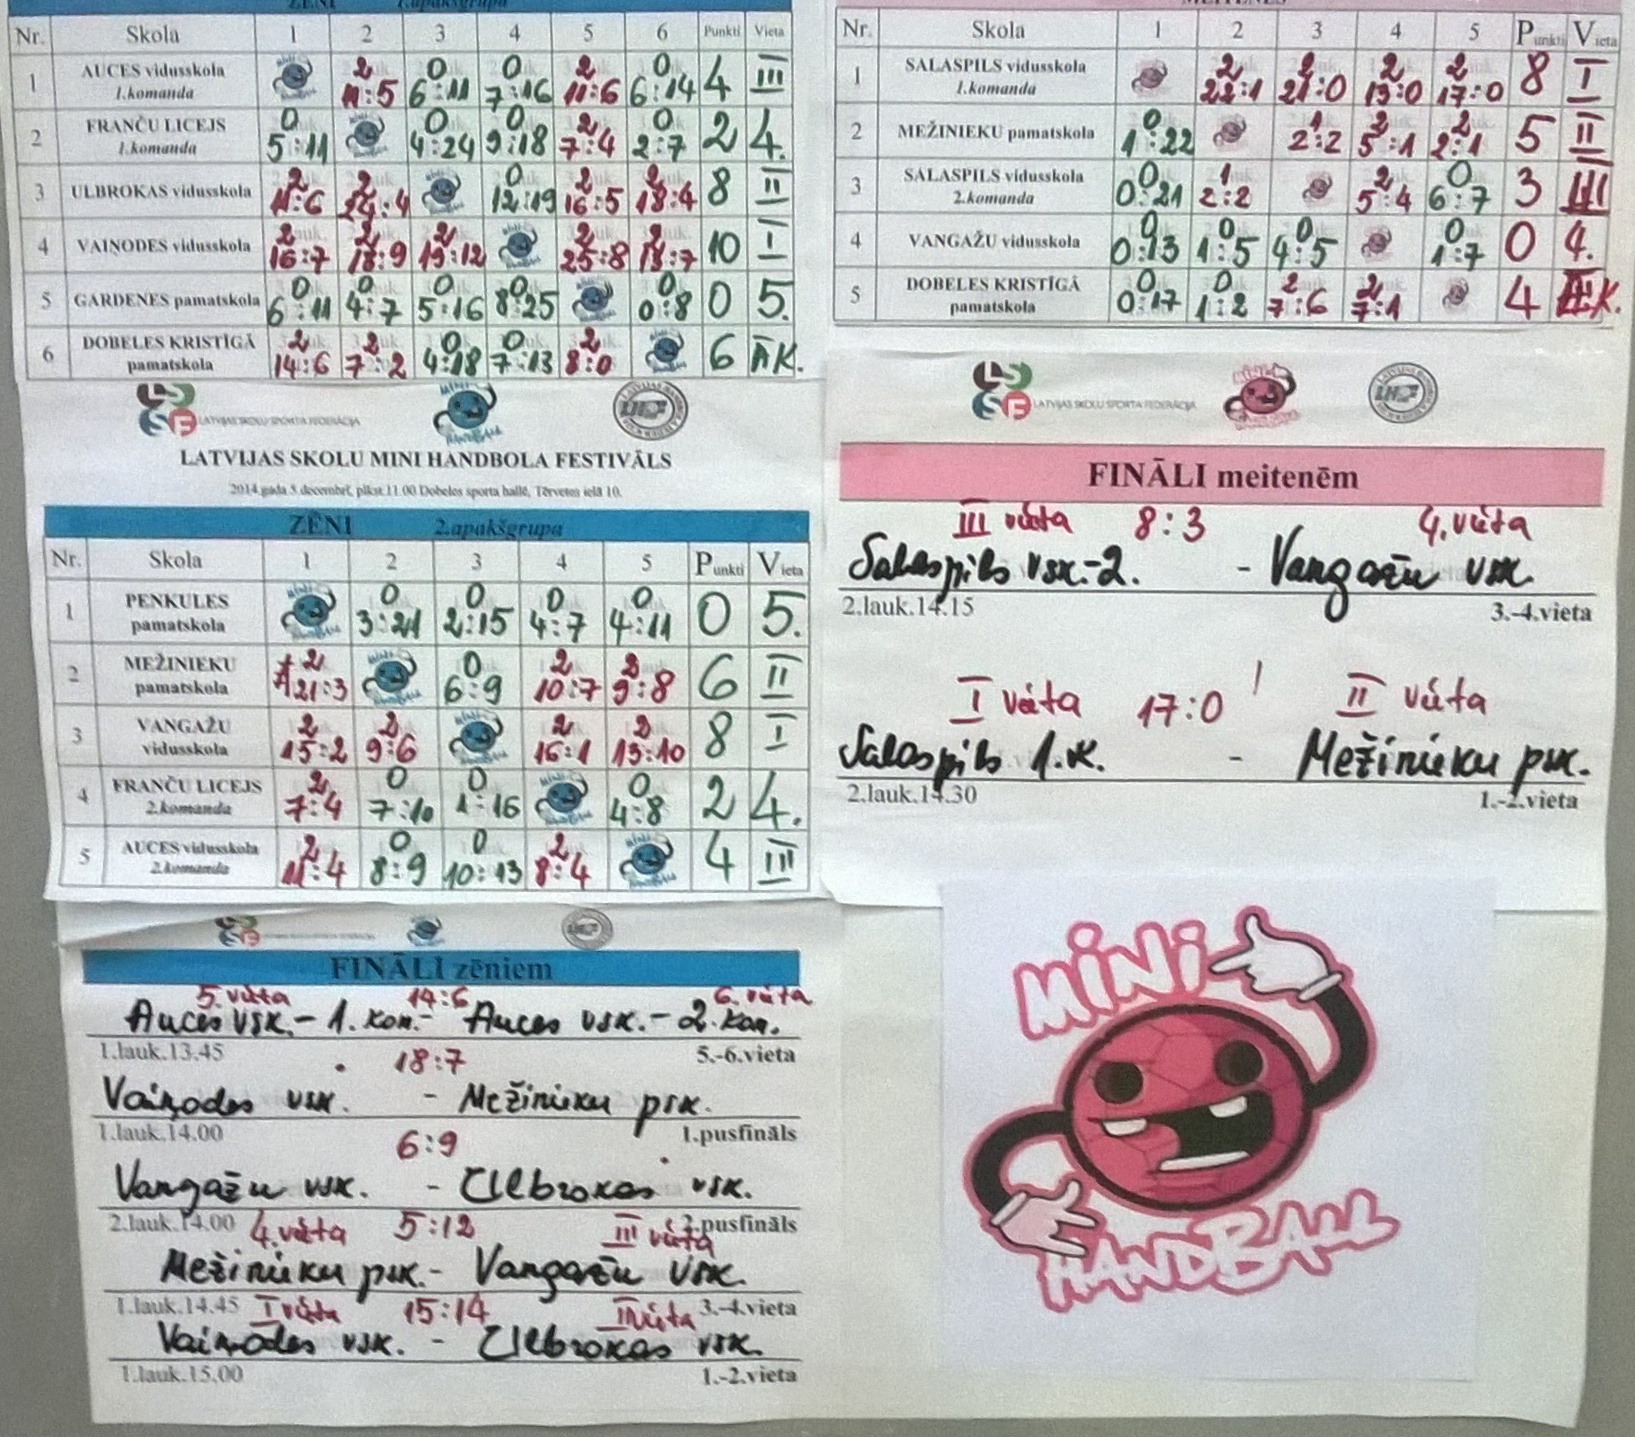 ZĒNI 1.apakšgrupa
Nr. Skola 1 2 3 4 5 6 Punkti Vieta
1 AUCES vidusskola 1.komanda 2 11:5 0 6:11 0 7:16 2 11:6 0 6:14 4 III
2 FRANČU LICEJS 1.komanda 0 5:11 0 4:24 0 9:18 2 7:4 0 2:7 2 4.
3 ULBROKAS vidusskola 2 11:6 2 24:4 0 12:19 2 16:5 2 18:4 8 II
4 VAIŅODES vidusskola 2 16:7 2 18:9 2 19:12 2 25:8 2 13:7 10 I
5 GARDENES pamatskola 0 6:11 0 4:7 0 5:16 0 8:25 0 0:8 0 5.
6 DOBELES KRISTĪGĀ pamatskola 2 14:6 2 7:2 0 4:18 0 7:13 2 8:0 6 ĀK.
LATVIJAS SKOLU SPORTA FEDERĀCIJA
LATVIJAS SKOLU MINI HANDBOLA FESTIVĀLS
2014.gada 5.decembrī, plkst.11.00 Dobeles sporta hallē, Tērvetes ielā 10.
ZĒNI 2.apakšgrupa
Nr. Skola 1 2 3 4 5 Punkti Vieta
1 PENKULES pamatskola 0 3:21 0 2:15 0 4:7 0 4:11 0 5.
2 MEŽINIEKU pamatskola 2 21:3 0 6:9 2 10:7 2 9:8 6 II
3 VANGAŽU vidusskola 2 15:2 2 9:6 2 16:1 2 13:10 8 I
4 FRANČU LICEJS 2.komanda 2 7:4 0 7:10 0 1:16 0 4:8 2 4.
5 AUCES vidusskola 2.komanda 2 11:4 0 8:9 0 10:13 2 8:4 4 III
FINĀLI zēniem
5. vieta 14:6 6. vieta
Auces vsk. - 1. kom. - Auces vsk. - 2. kom.
1.lauk.13.45 5.-6.vieta
18:7
Vaiņodes vsk. - Mežinieku psk.
1.lauk.14.00 1.pusfināls
6:9
Vangažu vsk. - Ulbrokas vsk.
2.lauk.14.00 2.pusfināls
4. vieta 5:12 III vieta
Mežinieku psk. - Vangažu vsk.
1.lauk.14.45 3.-4.vieta
I vieta 15:14 II vieta
Vaiņodes vsk. - Ulbrokas vsk.
1.lauk.15.00 1.-2.vieta
MEITENES
Nr. Skola 1 2 3 4 5 Punkti Vieta
1 SALASPILS vidusskola 1.komanda 2 22:1 2 21:0 2 13:0 2 17:0 8 I
2 MEŽINIEKU pamatskola 0 1:22 1 2:2 2 5:1 2 2:1 5 II
3 SALASPILS vidusskola 2.komanda 0 0:21 1 2:2 2 5:4 0 6:7 3 III
4 VANGAŽU vidusskola 0 0:13 0 1:5 0 4:5 0 1:7 0 4.
5 DOBELES KRISTĪGĀ pamatskola 0 0:17 0 1:2 2 7:6 2 7:1 4 K.
LATVIJAS SKOLU SPORTA FEDERĀCIJA
FINĀLI meitenēm
III vieta 8:3 4. vieta
Salaspils vsk.-2. - Vangažu vsk.
2.lauk.14.15 3.-4.vieta
I vieta 17:0 II vieta
Salaspils 1.k. - Mežinieku psk.
2.lauk.14.30 1.-2.vieta
MINI
HANDBALL